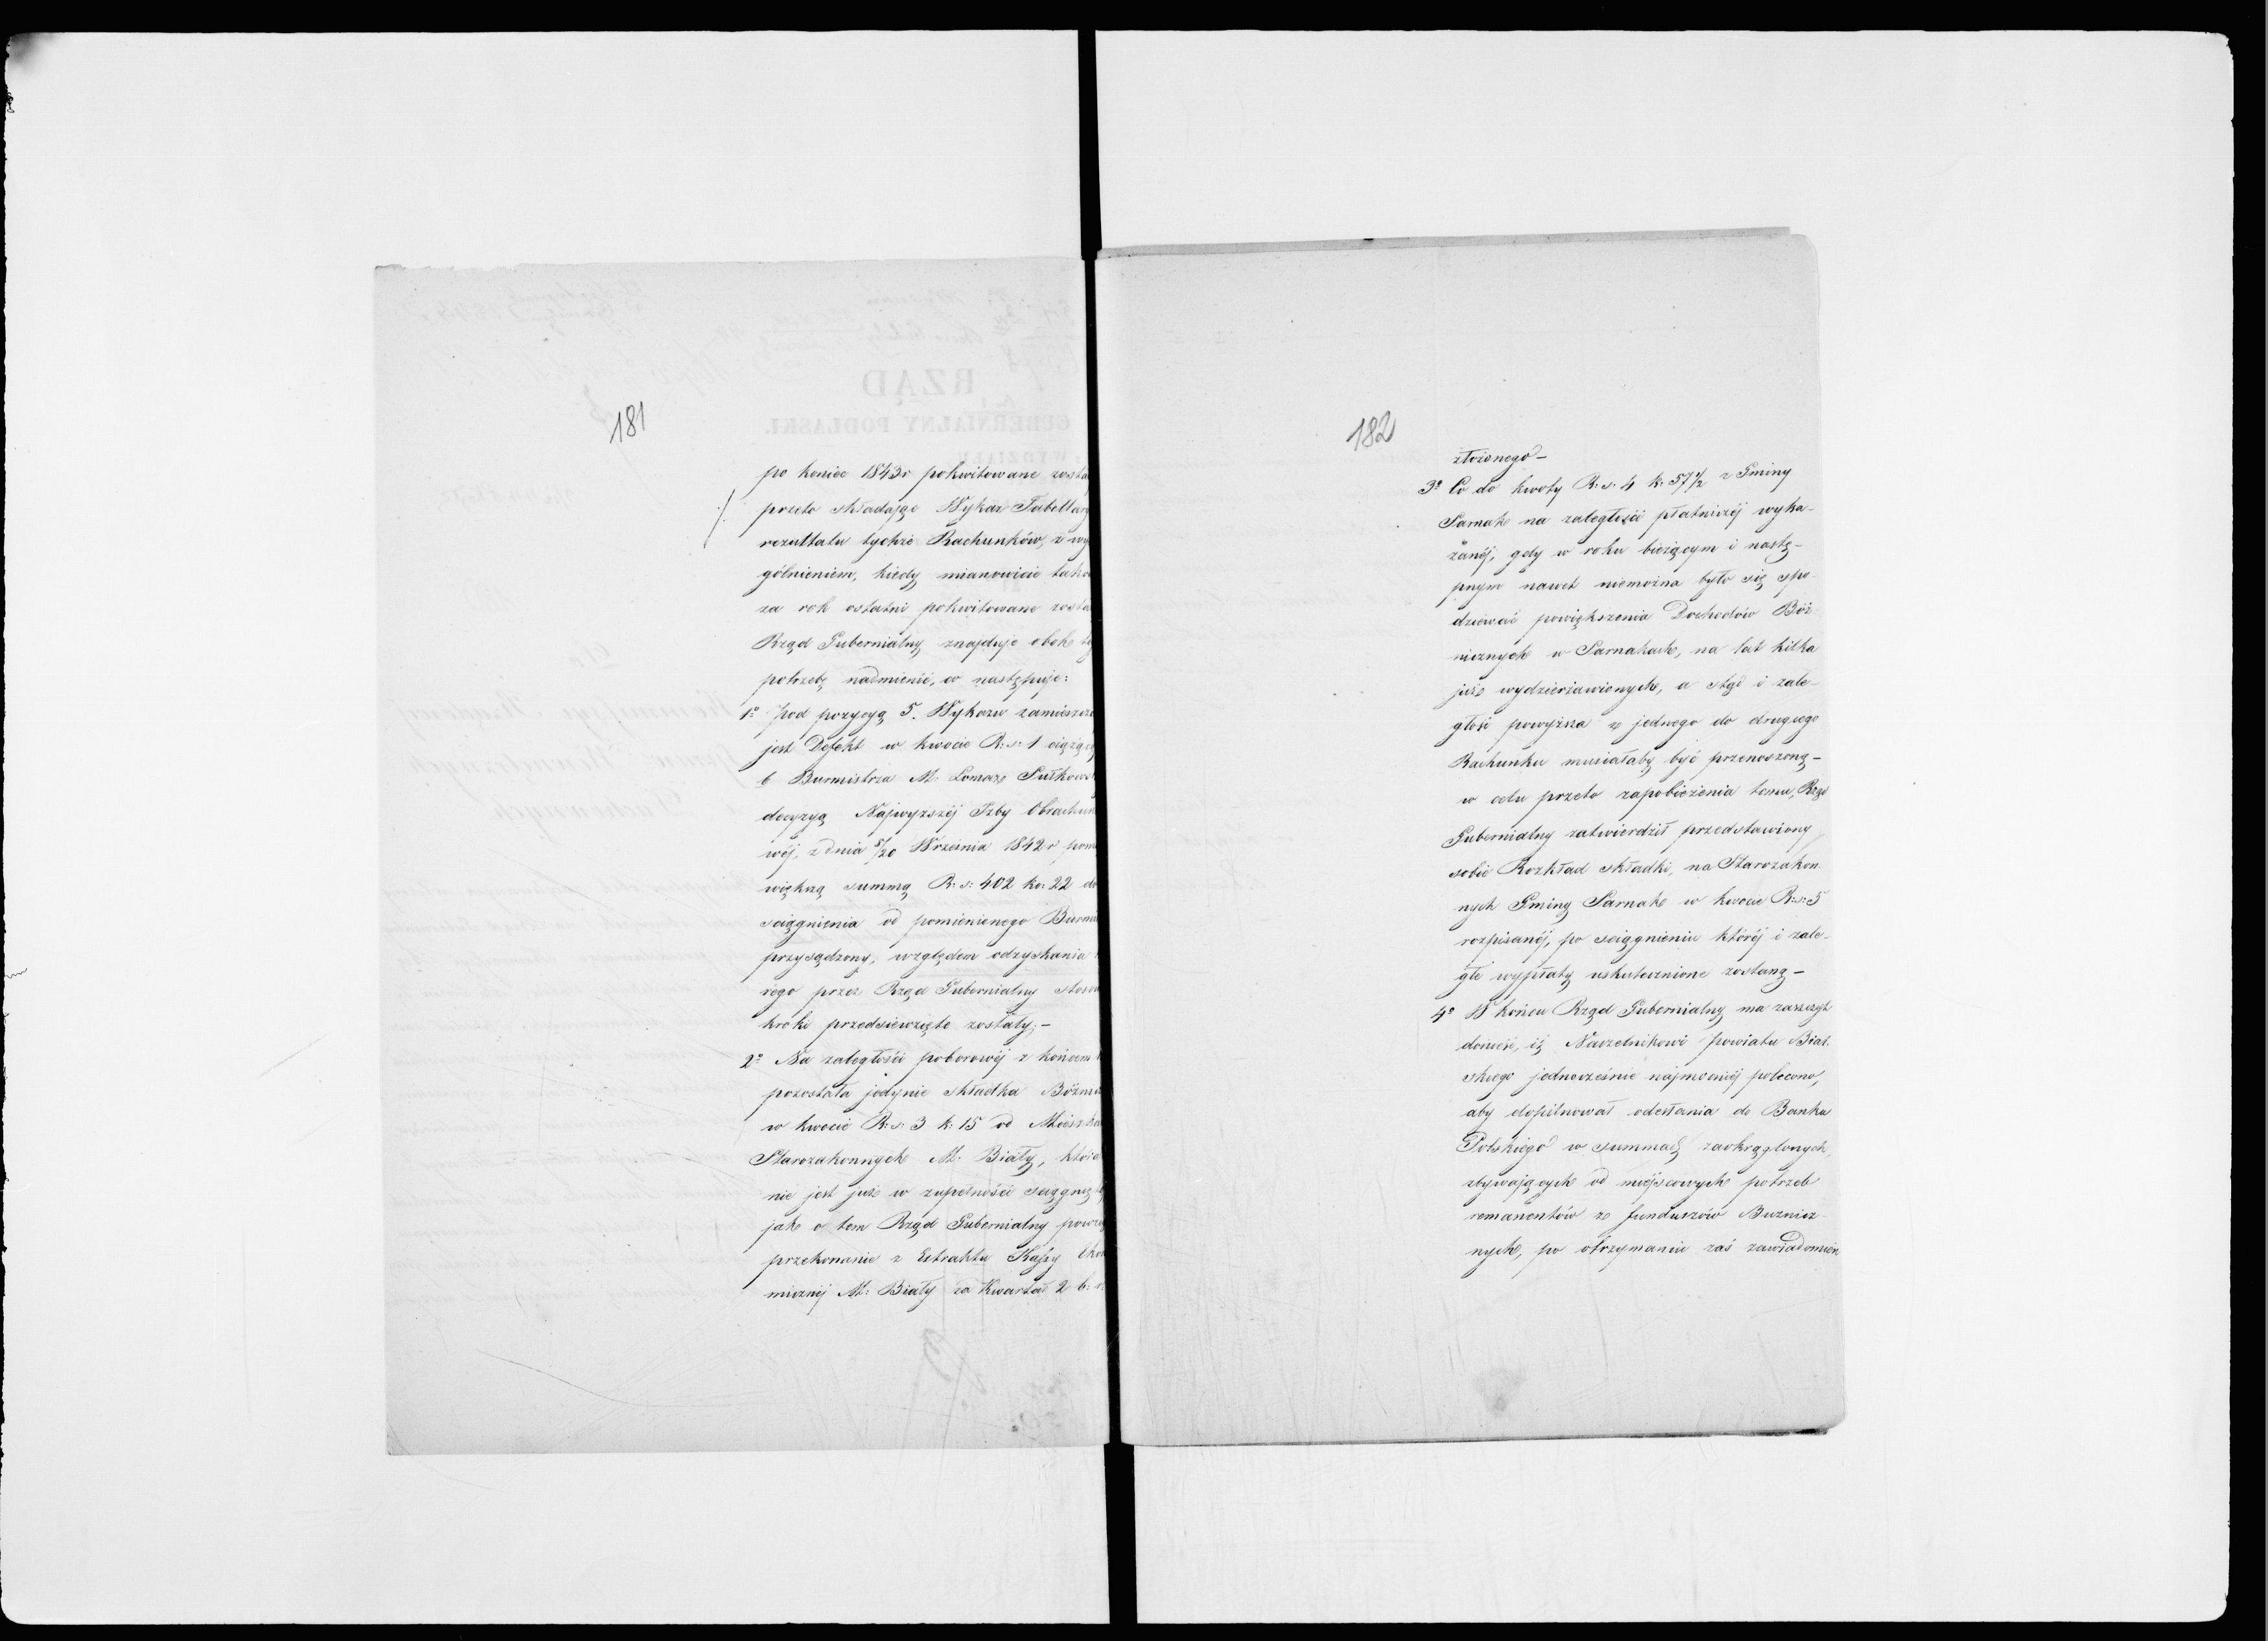 181
po koniec 1843 r pokwitowane zosta
przeto składając Wykaz Tabellary
rezultatu tychże Rachunków, z wy
gólnieniem, kiedy mianowicie tako
za rok ostatni pokwitowane zosta
Rząd Gubernialny znajduje obok te
potrzebę nadmienić, co następuje:
1o pod pozycyą 5. Wykazu zamieszcz
jest Defekt w kwocie R: s: 1 ciążąc
b Burmistrza M. Łomaz Sułkows
decyzyą Najwyższéj Izby Obrachun
wéj, z dnia 8/20 Września 1842 r pom
większą summą R: s: 402 ko: 22 do
sciągnienia od pomienionego Burmi
przysądzony, względem odzyskania
rego przez Rząd Gubernialny stosow
kroki przedsięwzięte zostały; –
2o Na zaległości poborowéj z końcem
pozostała jedynie składka Bóżni
w kwocie R: s: 3 k: 15 od Mieszka
Starozakonnych M. Biały, która
nie jest już w zupełności sciągnię
jak o tem Rząd Gubernialny powzi
przekonanie z Extraktu Kassy Eko
micznéj M: Biały za Kwartał 2 b: r:
182
złożonego –
3o Co do kwoty R: s: 4 k: 57 1/2 z Gminy
Sarnak na zaległości płatniczéj wyka-
zanéj, gdy w roku bieżącym i nastę-
pnym nawet niemożna było się spo-
dziewać powiększenia Dochodów Bóż-
nicznych w Sarnakach, na lat kilka
już wydzierżawionych, a ztąd i zale-
głość powyższa z jednego do drugiego
Rachunku musiałaby być przenoszoną –
w celu przeto zapobieżenia temu, Rząd
Gubernialny zatwierdził przedstawiony
sobie Rozkład składki, na Starozakon-
nych Gminy Sarnak w kwocie R: s: 5
rozpisanéj, po sciągnieniu któréj i zale-
głe wypłaty uskutecznione zostaną –
4o W końcu Rząd Gubernialny ma zaszczyt
donieść, iż Naczelnikowi Powiatu Bial-
skiego jednocześnie najmocniéj polecono,
aby dopilnował odesłania do Banku
Polskiego w summach zaokrąglonych,
zbywających od miéjscowych potrzeb
remanentów ze funduszów Buznicz-
nych, po otrzymaniu zaś zawiadomien